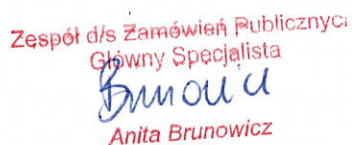 Zespół d/s Zamówień Publicznyc
Główny Specjalista
Brunowicz
Anita Brunowicz